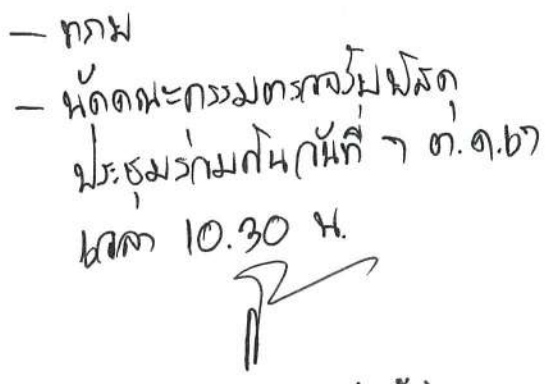 — ทราบ
— นัดคณะกรรมตรวจรับพัสดุ
ประชุมร่วมกันวันที่ ๆ ต.ค.๖๗
เวลา 10.30 น.